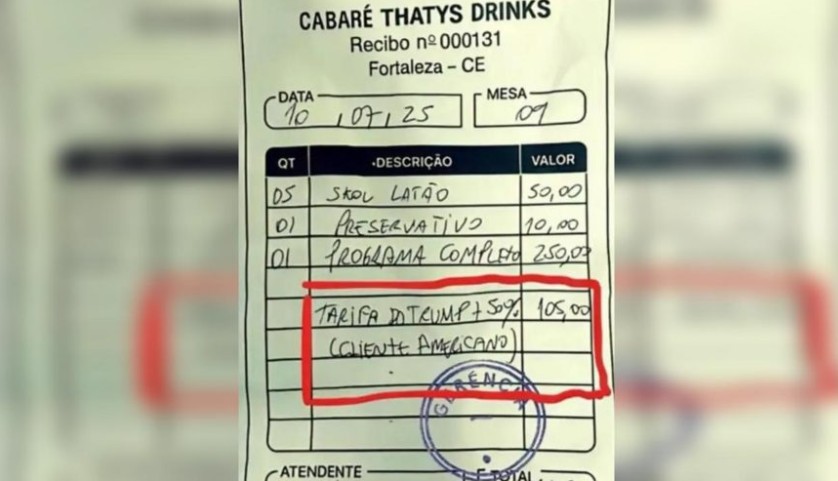 CABARÉ THATYS DRINKS
Recibo nº 000131
Fortaleza – CE
DATA MESA
10 , 07 , 25 09
QT •DESCRIÇÃO VALOR
05 SKOL LATÃO 50,00
01 PRESERVATIVO 10,00
01 PROGRAMA COMPLETO 250,00
TARIFA DO TRUMP + 50% 105,00
(CLIENTE AMERICANO)
GERÊNCIA
ATENDENTE TOTAL